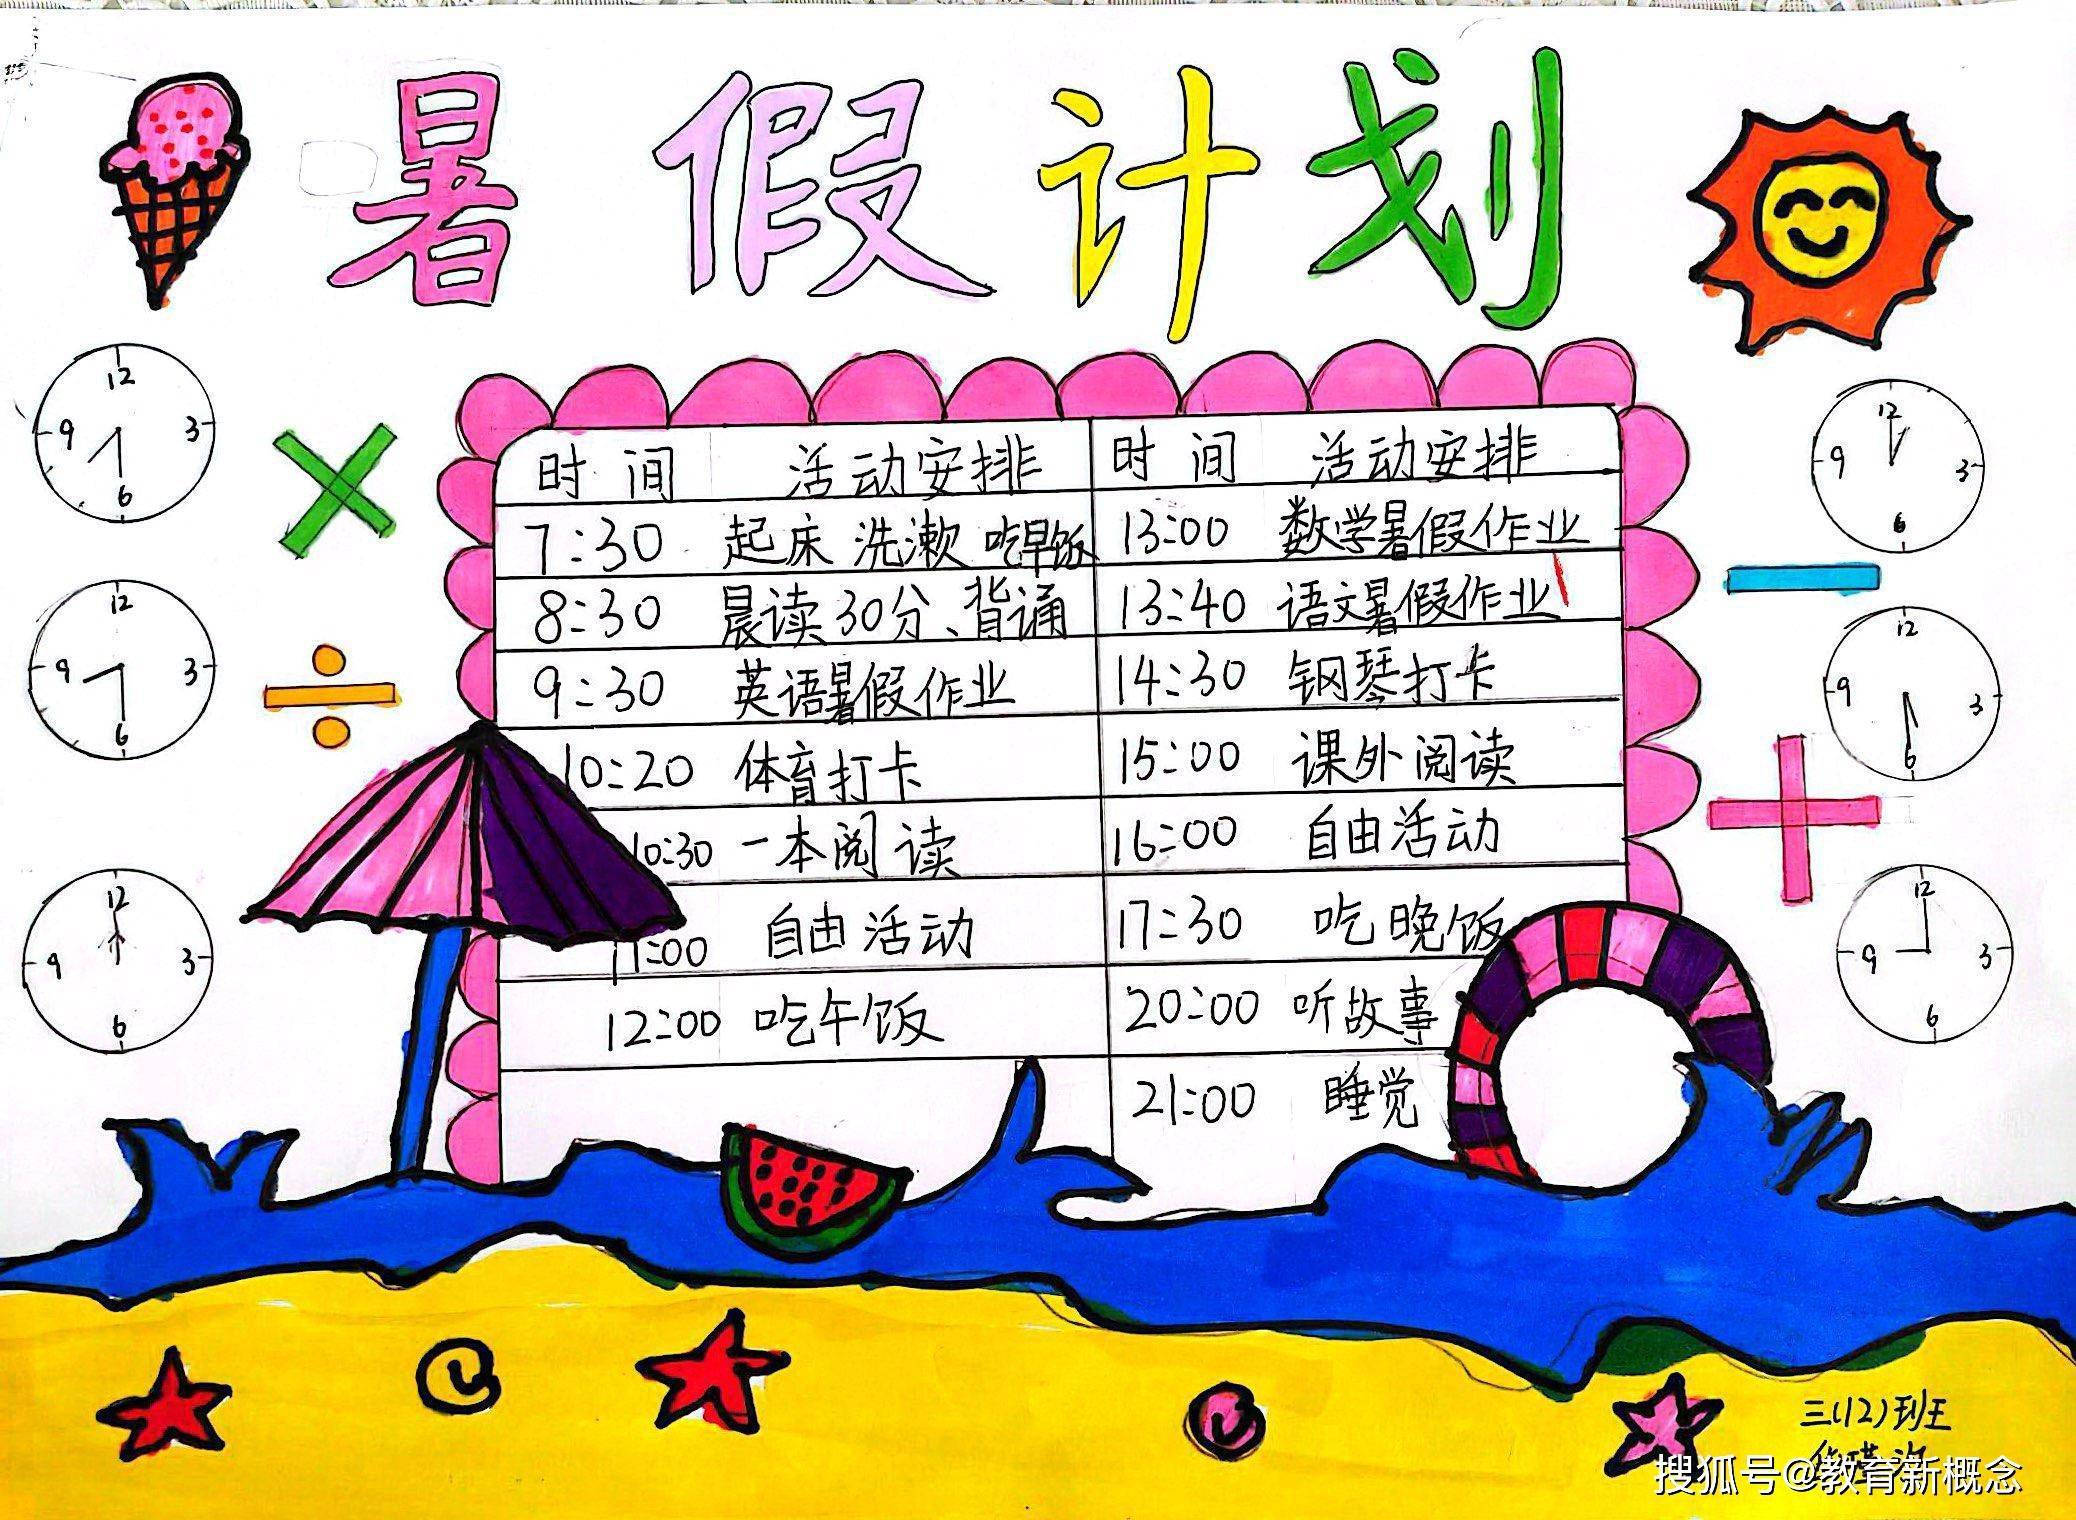 暑假计划
时间 活动安排 时间 活动安排
7:30 起床 洗漱 吃早饭 13:00 数学暑假作业
8:30 晨读30分、背诵 13:40 语文暑假作业
9:30 英语暑假作业 14:30 钢琴打卡
10:20 体育打卡 15:00 课外阅读
10:30 一本阅读 16:00 自由活动
11:00 自由活动 17:30 吃晚饭
12:00 吃午饭 20:00 听故事
21:00 睡觉
12
9 3
6
12
9 3
6
12
9 3
6
12
9 3
6
12
9 3
6
12
9 3
6
三(12)班
搜狐号@教育新概念